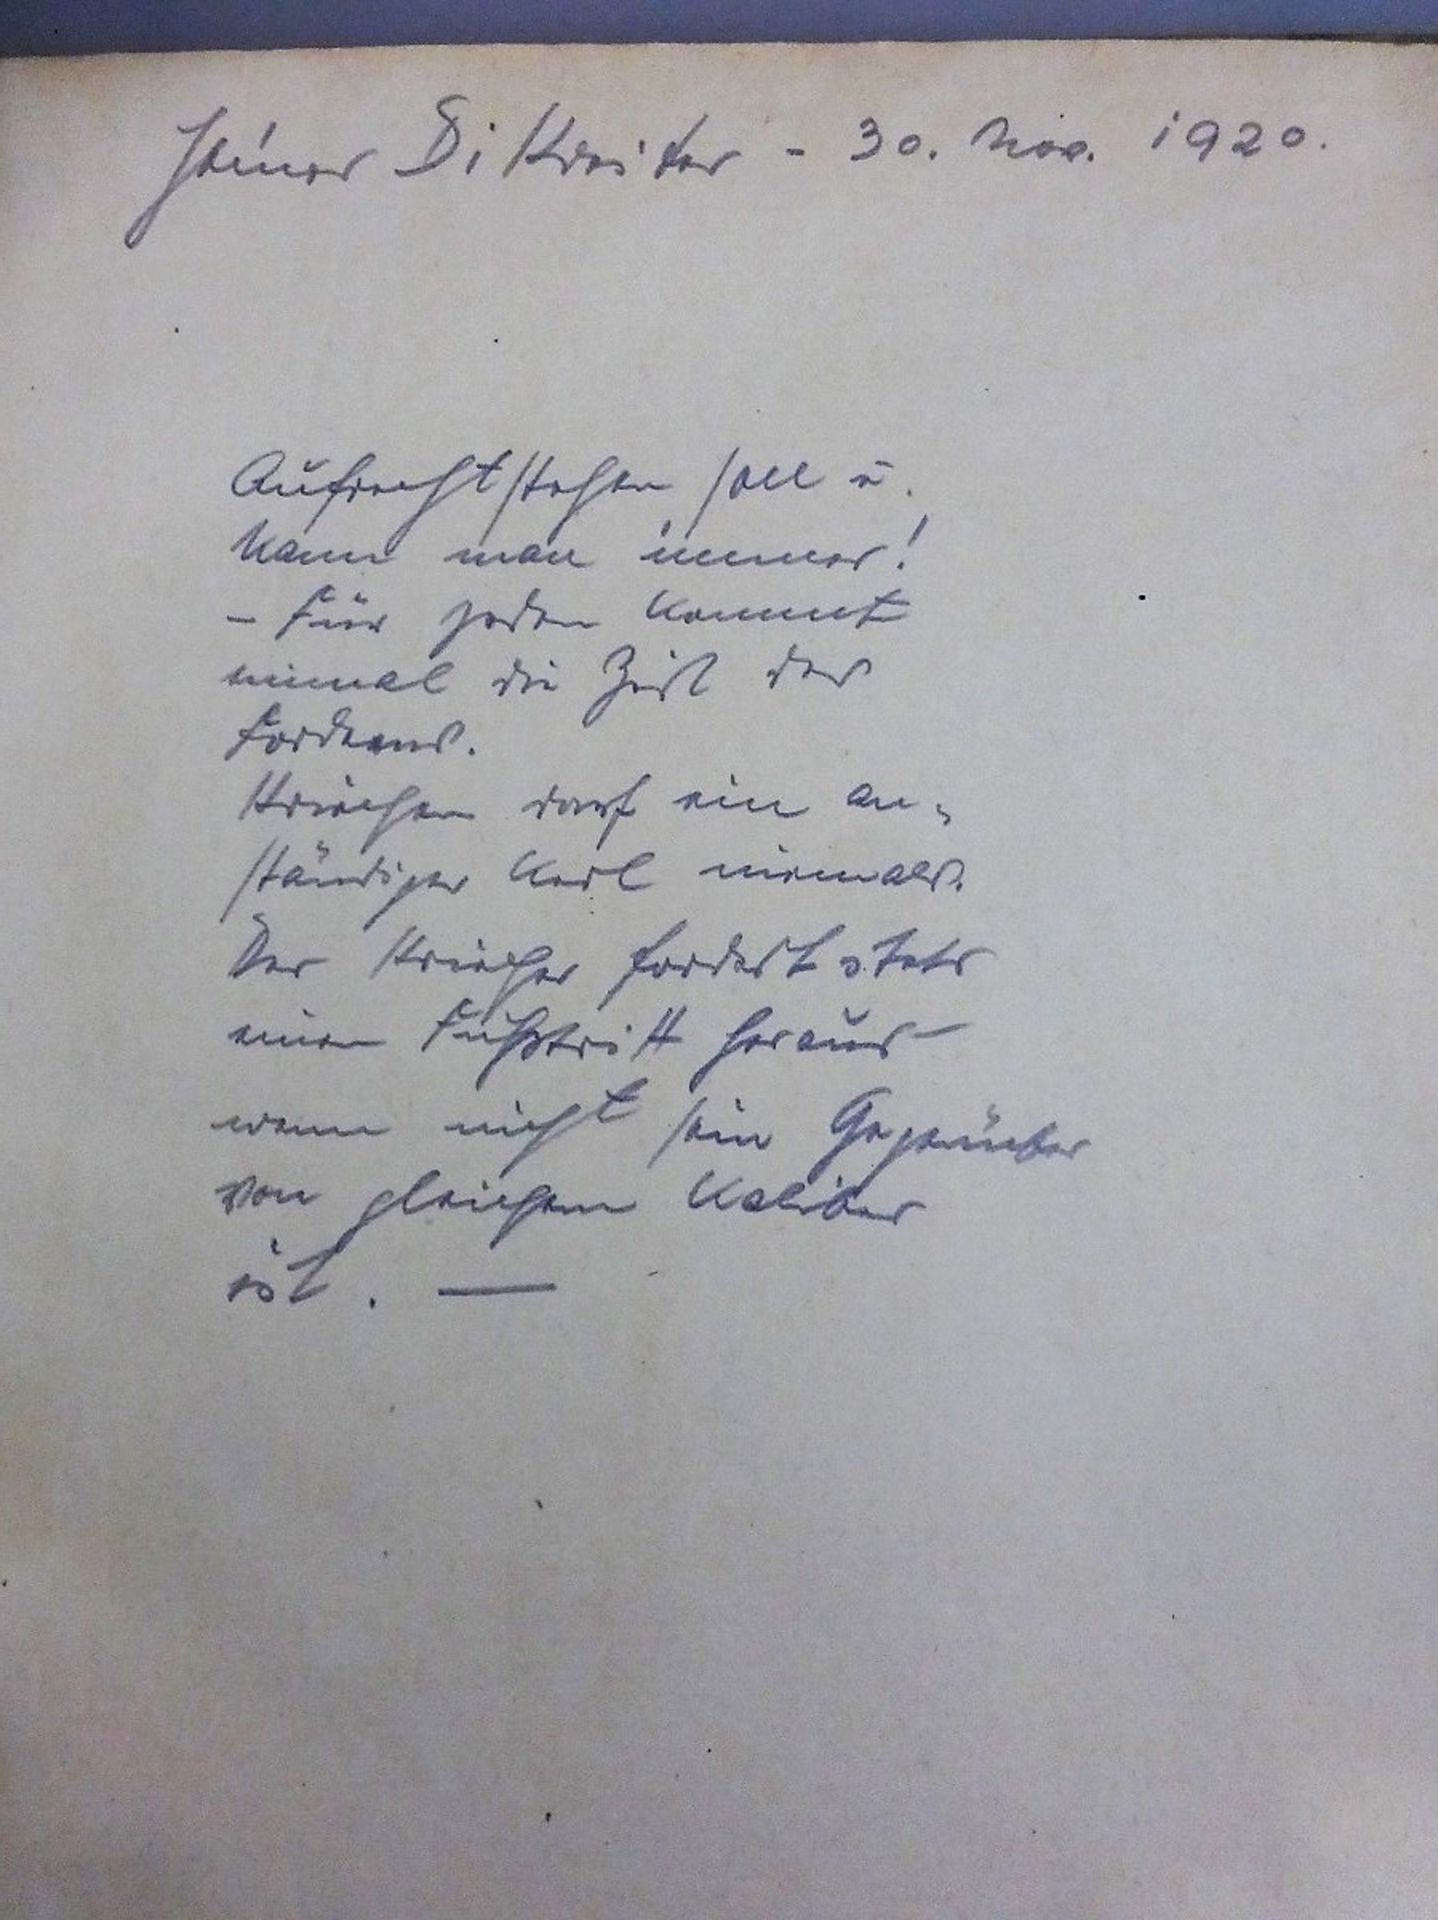 Heiner Dikreiter - 30. Nov. 1920.
Aufrecht stehen soll u.
kann man immer!
- Für jeden kommt
einmal die Zeit des
Forderns.
Kriechen darf ein an-
ständiger Kerl niemals.
Der Kriecher fordert stets
einen Fußtritt heraus -
wenn nicht sein Gegenüber
von gleichem Kaliber
ist. —